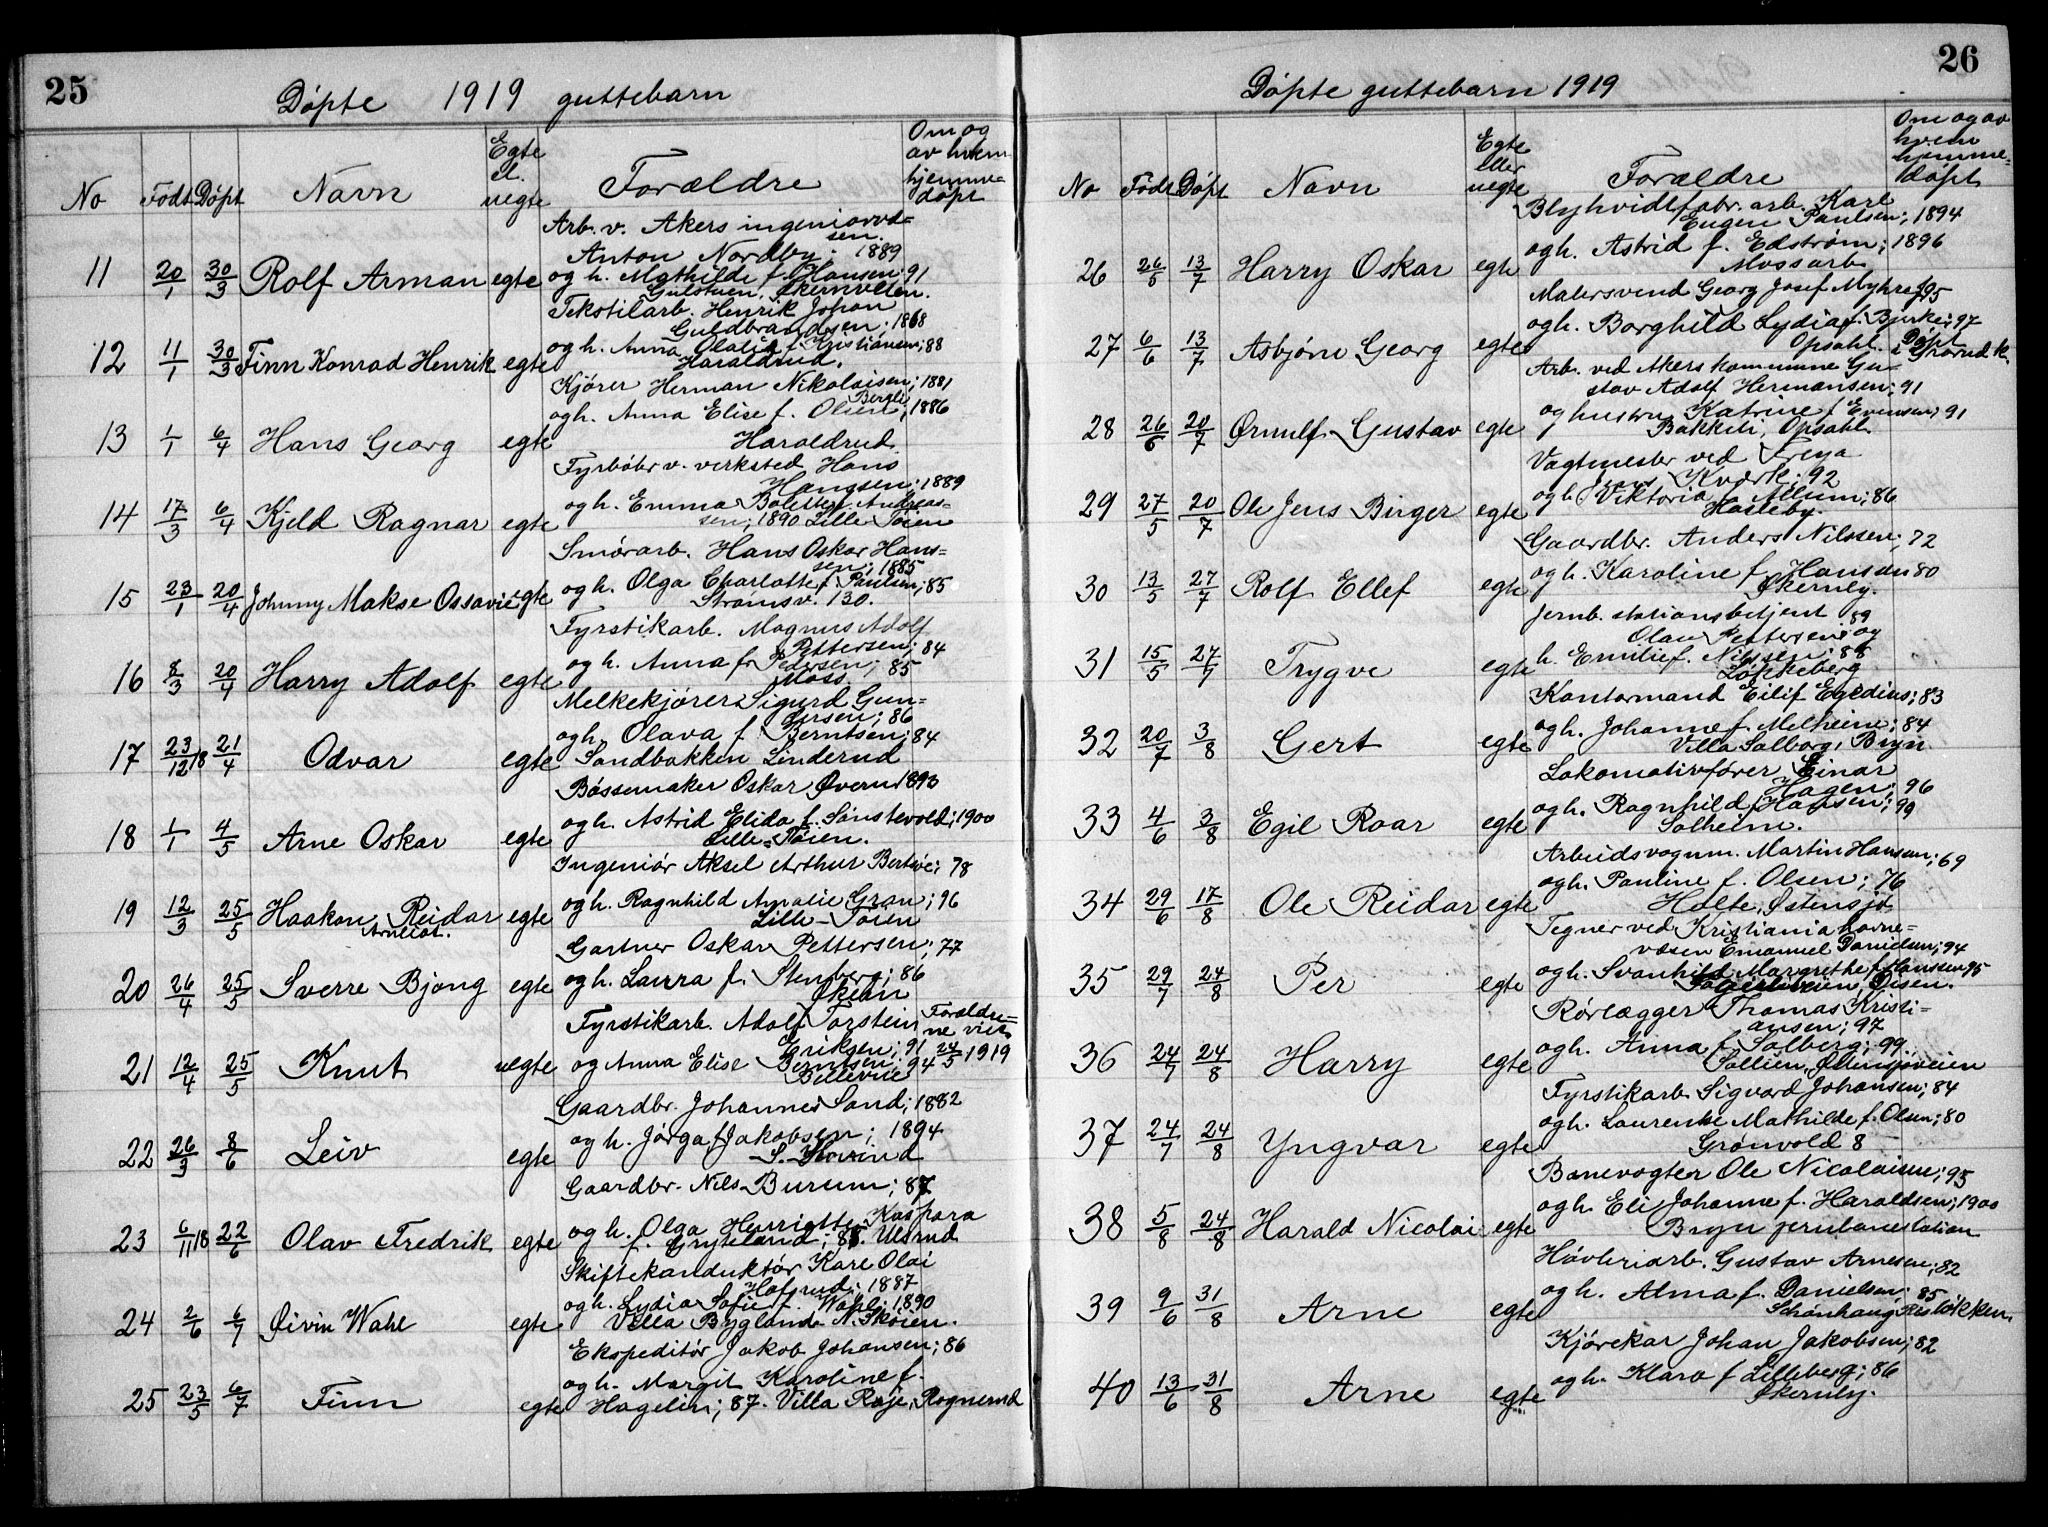 25
Døpte 1919 guttebarn
No Født Døpt Navn Egte el. uegte Forældre Om og av hvem hjemmedøpt
Arb. v. Akers ingeniørvæ-
sen.
Anton Nordby. 1889
11 20/1 30/3 Rolf Arman egte og h. Mathilde f. Hansen. 91
Gulstuen, Økernveien.
Tekstilarb. Henrik Johan
Guldbrandsen; 1868
12 11/1 30/3 Finn Konrad Henrik egte og h. Anna Olatia f. Kristiansen; 88
Haraldrud.
Kjører Herman Nikolaisen; 1881
13 1/1 6/4 Hans Georg egte og h. Anna Elise f. Olsen, 1886
Haraldrud
Fyrbøter v. verksted Hans
Hansen; 1889
14 17/3 6/4 Kjeld Ragnar egte og h. Emma Bolette f. Andreas-
sen; 1890 Lille Tøien
Smørarb. Hans Oskar Hans-
sen; 1885
15 23/1 20/4 Johnny Makse Ossavie egte og h. Olga Charlotte f. Paulsen; 85
Strømsv. 130.
Fyrstikarb. Magnus Adolf
Pettersen; 84
16 8/3 20/4 Harry Adolf egte og h. Anna f. Pedersen; 85
Moss
Melkekjører Sigurd Gun-
dersen; 86
17 23/12 18 21/4 Odvar egte og h. Olava f. Berntsen; 84
Sandbakken Linderud
Bøssemaker Oskar Øvern 1893
18 1/1 4/5 Arne Oskar egte og h. Astrid Elida f. Sønstevold; 1900
Lille-Tøien.
Ingeniør Aksel Arthur; 78
19 12/3 25/5 Haakon Reidar egte og h. Ragnhild Amalie Gran; 96
Arnliot.
Lille-Tøien
Gartner Oskar Pettersen; 77
20 26/4 25/5 Sverre Bjong egte og h. Laura f. Stenberg; 86
Økern
Fyrstikarb. Adolf Torstein Forældre-
Eriksen; 91 ne viet
21 12/4 25/5 Knut uegte og Anna Elise Berntsen; 94 24/5 1919
Bellevue
Gaardbr. Johannes Sand; 1882
22 26/3 8/6 Leiv egte og h. Jørga f. Jakobsen; 1894
Gaardbr. Nils Burum; 87
23 6/11 18 22/6 Olav Fredrik egte og h. Olga Henriette Kaspara
f. Gryteland; 8 Ulsrud
Skiftekonduktør Karl Olai
Hofsrud; 1887
24 2/6 6/7 Øivin Wahl egte og h. Lydia Sofie f. Wahl; 1890
Villa Bygland N. Skøien.
Ekspeditør Jakob Johansen; 86
25 23/5 6/7 Finn egte og h. Margit Karoline f.
Hagelin; 87. Villa Røje, Rognerud
26
Døpte guttebarn 1919
No Født Døpt Navn Egte eller uegte Forældre Om og av hvem hjemme-døpt
Blyhvidtfabr. arb. Karl
Eugen Paulsen; 1894
26 26/5 13/7 Harry Oskar egte og h. Astrid f. Edstrøm; 1896
Malersvend Georg Josef Myhre; 95
27 6/6 13/7 Asbjørn Georg egte og h. Borghild Lydia f. Bjerke; 97
Opsahl. Døpt i Grorud k.
Arb. ved Akers kommune Gu-
stav Adolf Hermansen; 91
28 26/6 20/7 Ørnulf Gustav egte og hustru Katrine f. Evensen; 91
Bakkeli, Opsahl.
Vagtmester ved Freya
Kværk; 92
29 27/5 20/7 Ole Jens Birger egte og h. Viktoria f. Allum; 86
Hasleby.
Gaardbr. Anders Nilssen; 72
30 13/5 27/7 Rolf Ellef egte og h. Karoline f. Hansen 80
Økernly.
Jernb. stationsbetjent
Olav Pettersen; 89 og
31 15/5 27/7 Trygve egte h. Emilie f. Nilssen; 88
Løkkeberg
Kontormand Eilif Egedius; 83
32 20/7 3/8 Gert egte og h. Johanne f. Melheine; 84
Villa Solborg, Bryn.
Lokomotivfører Einar
Hagen; 96
33 4/6 3/8 Egil Roar egte og h. Ragnhild f. Hansen; 99
Solheim.
Arbeidsvognm. Martin Hansen; 69
34 29/6 17/8 Ole Reidar egte og h. Pauline f. Olsen; 76
Holte, Østensjø
Tegner ved Kristiania havne-
væsen Emanuel Danielsen; 94
35 29/7 24/8 Per egte og h. Svanhild Margrethe f. Hanssen 95
Rørlægger Thomas Kristi-
ansen; 97
36 24/7 24/8 Harry egte og h. Anna f. Solberg; 99
Sollien, Østensjøveien
Fyrstikarb. Sigvard Johansen; 84
37 24/7 24/8 Yngvar egte og h. Laurense Mathilde f. Olsen; 80
Grønvold 8
Banevogter Ole Nicolaisen; 95
38 5/8 24/8 Harald Nicolai egte og h. Eli Johanne f. Haraldsen; 1900
Bryn jernbanestation
Høvleriarb. Gustav Arnesen; 82
39 9/6 31/8 Arne egte og h. Alma f. Danielsen; 85
Schønhaug
Kjørekar Johan Jakobsen; 82
40 13/6 31/8 Arne egte og h. Klara f. Lilleberg; 86
Økernly.